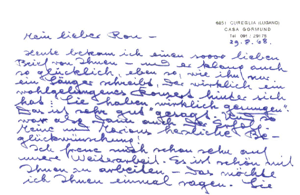 6951 CUREGLIA (LUGANO)
CASA GORMUND
29.8.68.
Mein lieber Ron –
Heute bekam ich einen sooo lieben
Brief von Ihnen – und er klang auch
so glücklich, eben so, wie ihn nur
ein Sänger schreibt, der wirklich ein
wohlgelungenes Konzert hinter sich
hat. Sie haben wirklich
Das ist sehr gut gesagt.
war es
Meine herzlichste Be-
glückwünschung!
Ich freue mich schon sehr auf
unsere Weiterarbeit. Es ist schön mit
Ihnen zu arbeiten – das möchte
ich Ihnen einmal sagen. Sie